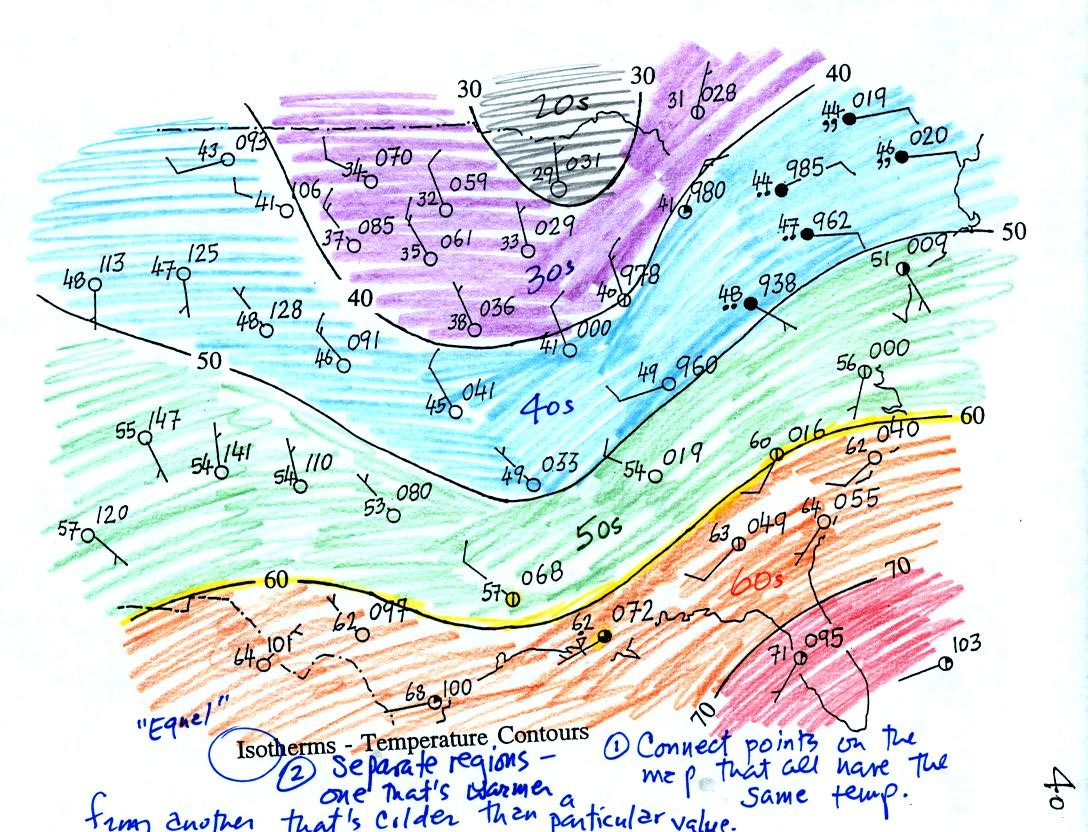 30
30
40
20s
31
028
44
019
46
020
43
093
34
070
29
031
32
059
41
106
41
980
44
985
37
085
35
061
33
029
47
962
50
48
113
47
125
30s
40
978
51
009
40
48
128
38
036
41
000
48
938
46
091
50
49
960
56
000
45
041
40s
60
55
147
54
141
54
110
49
033
54
019
60
016
62
040
53
080
57
120
50s
63
049
64
055
60
57
068
60s
70
62
097
62
072
64
101
71
095
103
68
100
70
"Equal"
Isotherms - Temperature Contours
① Connect points on the
map that all have the
same temp.
② Separate regions -
one that's warmer
from another that's colder than a particular value.
40